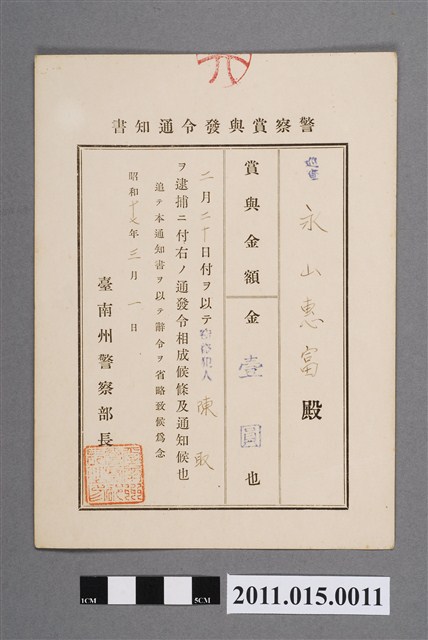 警察賞與發令通知書
巡查 永山惠富殿
賞與金額 金壹圓也
二月二十日付ヲ以テ窃盗犯人 陳取
ヲ逮捕ニ付右ノ通發令相成候條及通知候也
追テ本通知書ヲ以テ辭令ヲ省略致候爲念
昭和十七年三月一日
臺南州警察部長
1CM
5CM
2011.015.0011